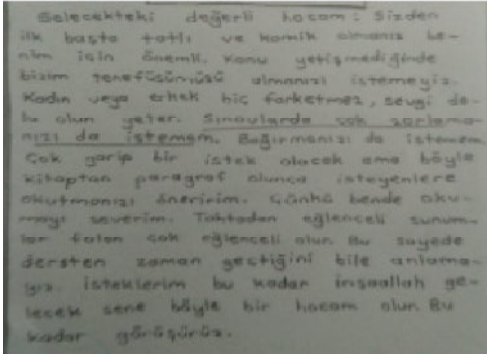 Gelecekteki değerli hocam: Sizden
ilk başta tatlı ve komik olmanız be-
nim için önemli. Konu yetişmediğinde
bizim tenefüsümüzü almanızı istemeyiz.
Kadın veya erkek hiç farketmez, sevgi do-
lu olun yeter. Sınavlarda çok zorlama-
nızı da istemem. Bağırmanızı da istemem.
Çok garip bir istek olacak ama böyle
kitaptan paragraf olunca isteyenlere
okutmanızı öneririm. Çünkü bende oku-
mayı severim. Tahtadan eğlenceli sunum-
lar falan çok eğlenceli olun. Bu sayede
dersten zaman geçtiğini bile anlama-
yız. İsteklerim bu kadar inşaallah ge-
lecek sene böyle bir hocam olun. Bu
kadar görüşürüz.